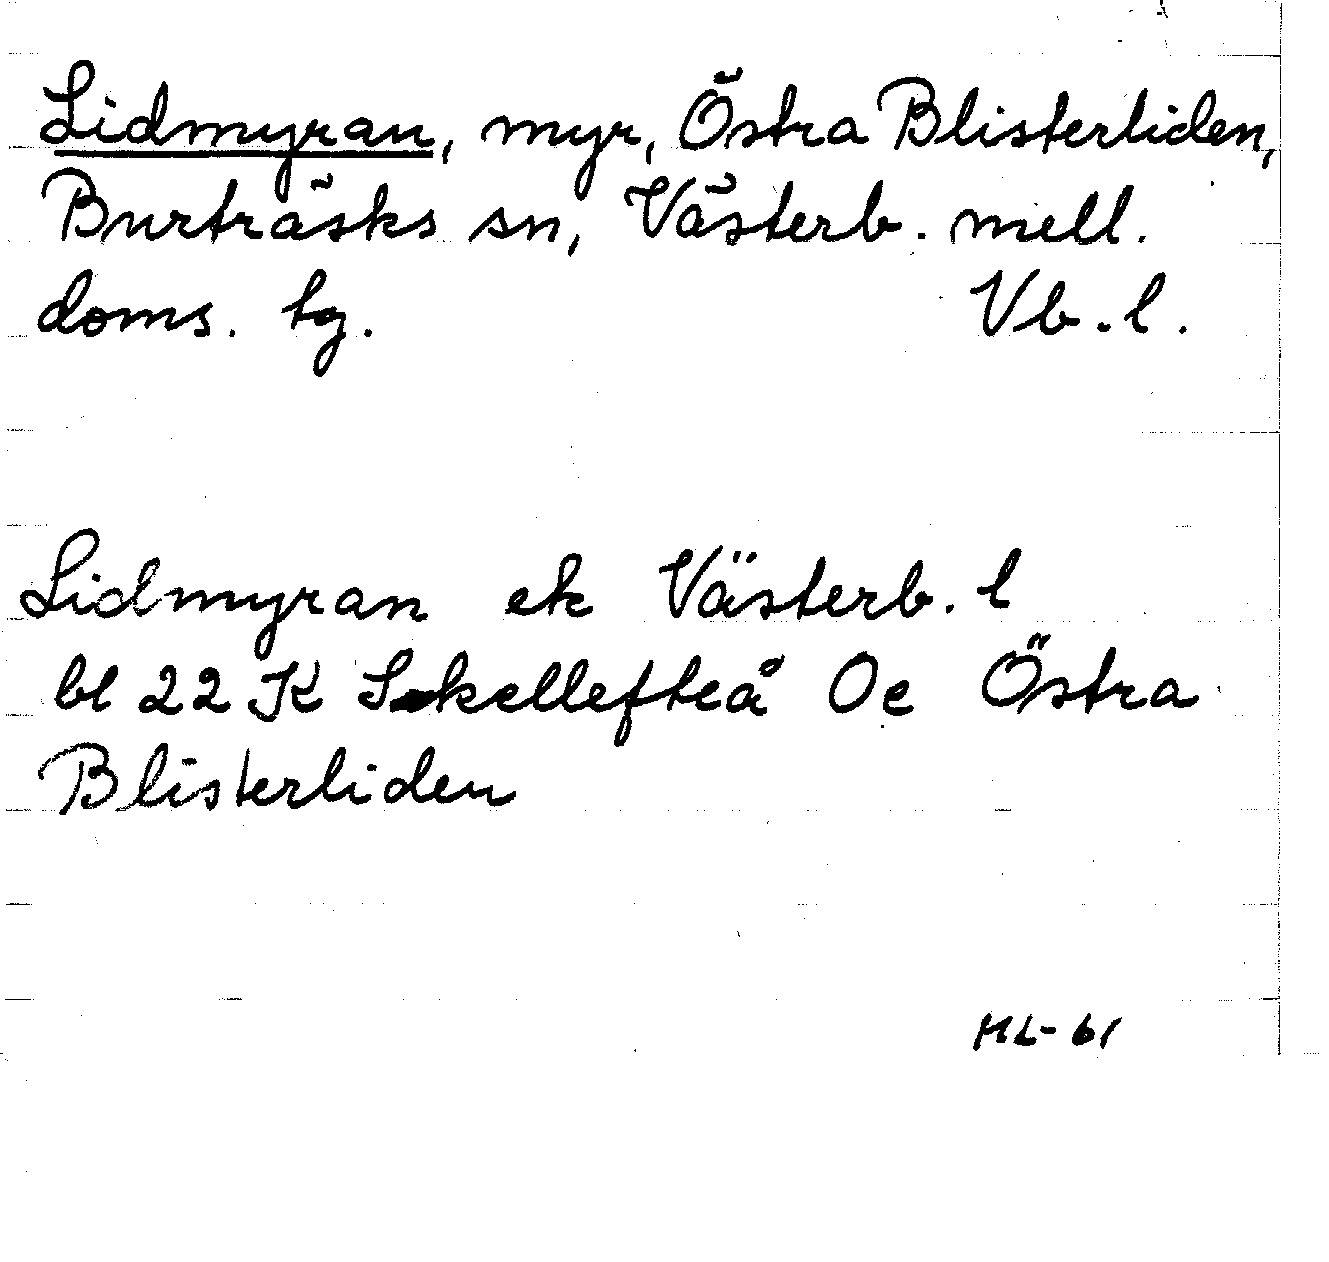 Lidmyran, myr, Östra Blisterliden,
Burträsks sn, Västerb. mell.
doms. tg. Vb. l.
Lidmyran ek Västerb. l
bl 22 K Skellefteå Oe Östra
Blisterliden
HL-61